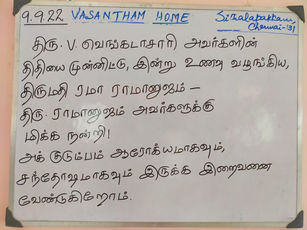 9.9.22 VASANTHAM HOME Sithalapakkam, Chennai-131
திரு. V. வெங்கடாசாரி அவர்களின்
திதியை முன்னிட்டு, இன்று உணவு வழங்கிய,
திருமதி ரமா ராமானுஜம் –
திரு. ராமானுஜம் அவர்களுக்கு
மிக்க நன்றி!
அக் குடும்பம் ஆரோக்யமாகவும்,
சந்தோஷமாகவும் இருக்க இறைவனை
வேண்டுகிறோம்.